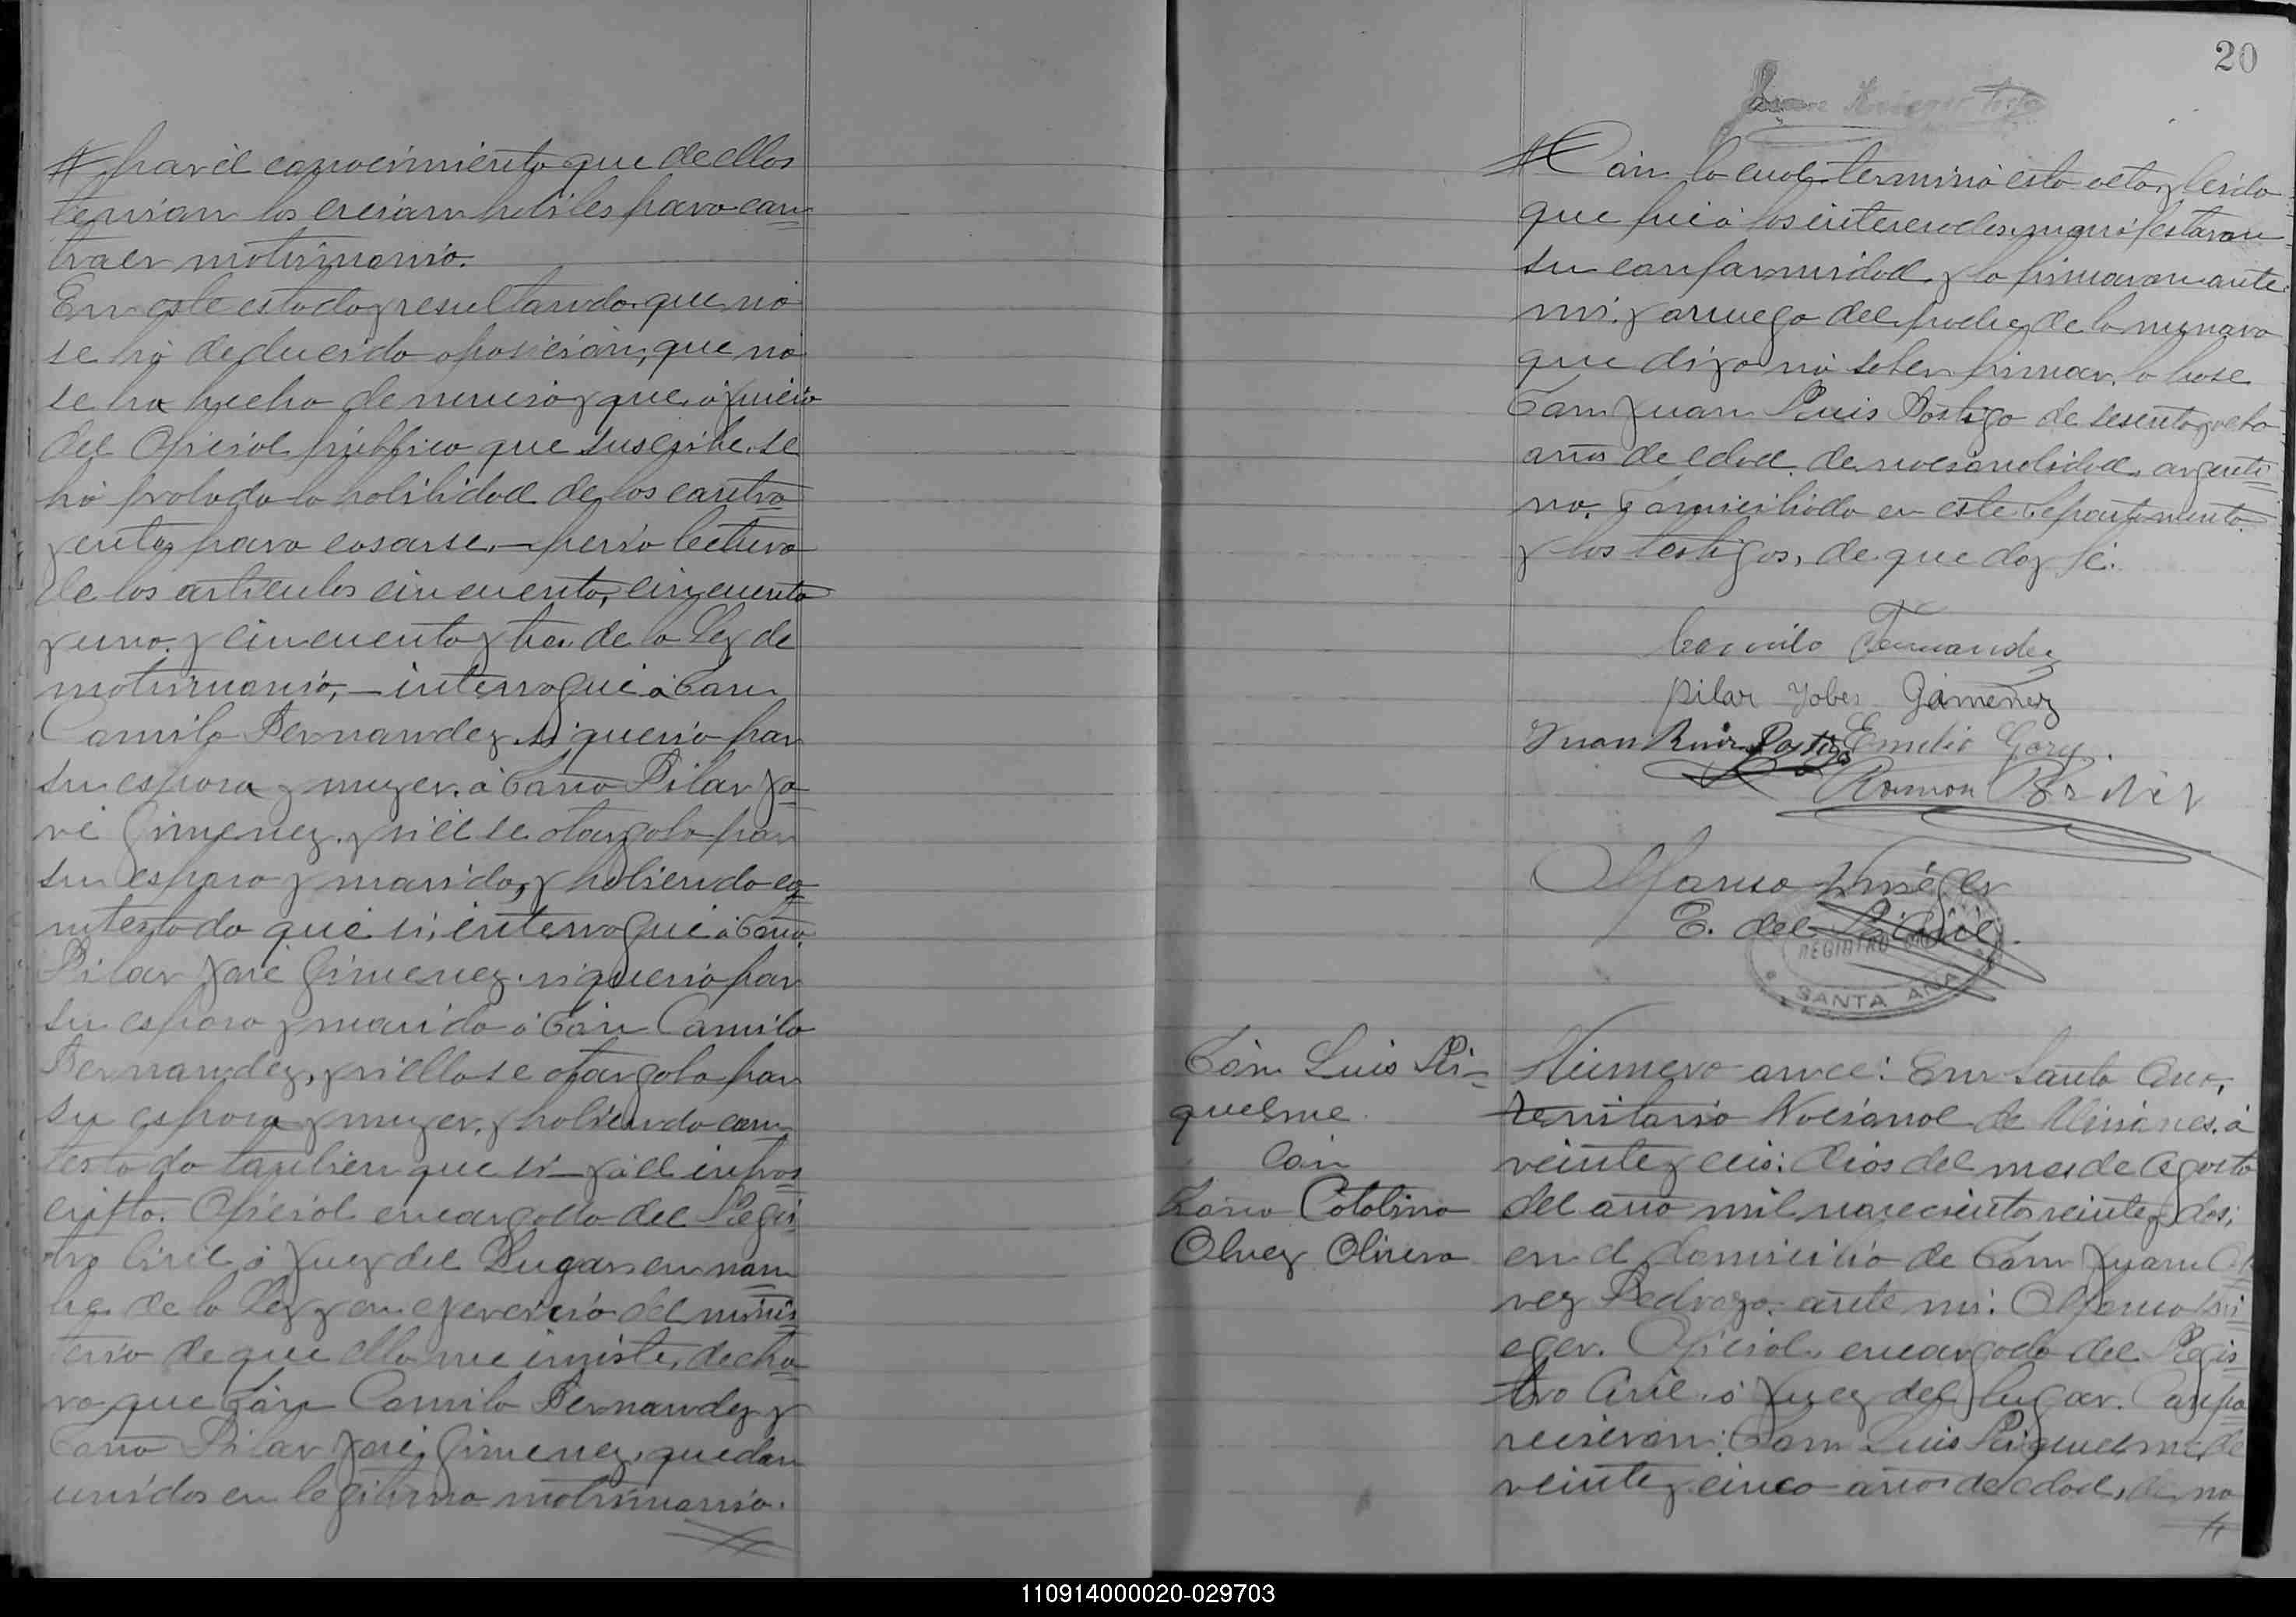 # por el conocimiento que de ellos
tenian los creian habiles para con=
traer matrimonio.
En este estado y resultando que nó
se há deducido oposicion, que no
se ha hecho denuncia y que, á juicio
del Oficial público que suscribe se
há probado la habilidad de los contra=
yentes para casarse,— previa lectura
de los articulos cincuenta, cincuenta
y uno y cincuenta y tres de la Ley de
matrimonio,— interrogué á Don
Camilo Fernandez si queria por
su esposa y mujer á Doña Pilar Jo=
vé Gimenez y si él se otorgaba por
su esposo y marido, y habiendo co=
ntestado que si, interrogué á Doña
Pilar Jové Gimenez si queria por
su esposo y marido á Don Camilo
Fernandez, y si ella se otorgaba por
su esposa y mujer, y habiendo con=
testado tambien que si — yó el infras=
cripto Oficial encargado del Regis=
tro Civil ó Juez del Lugar en nom=
bre de la Ley y en ejercicio del minis=
terio de que ella me inviste, decla=
ro que Don Camilo Fernandez y
Doña Pilar Jové Gimenez, quedan
unidos en legitimo matrimonio.
#
20
# Con lo cual terminó esta acta, y leida
que fué á los interesados, manifestaron
su conformidad y la firmaron ante
mi, y a ruego del padre de la
que dijo nó saber firmar, lo hace
Don Juan Ruis Postigo de sesenta y ocho
años de edad, de nacionalidad argenti=
no, domiciliado en este Departamento
y los testigos, de que doy fé.
Camilo Fernandez
Pilar Jobes Gimenez
Juan Ruiz Postigo Emilio
Ramon
Krieger
E. del R. Civil
REGISTRO CIVIL
SANTA ANA
Don Luis Ri=
quelme
Con
Doña Catalina
Alvez Olivera
Número once: En Santa Ana,
Territorio Nacional de Misiones, á
veinte y seis dias del mes de Agosto
del año mil novecientos veinte y dos,
en el domicilio de Don Juan Al=
vez Pedrozo, ante mi: Kri=
eger, Oficial encargado del Regis=
tro Civil ó Juez del lugar. Compa=
recieron: Don Luis Riquelme, de
veinte y cinco años de edad, de na
#
110914000020-029703